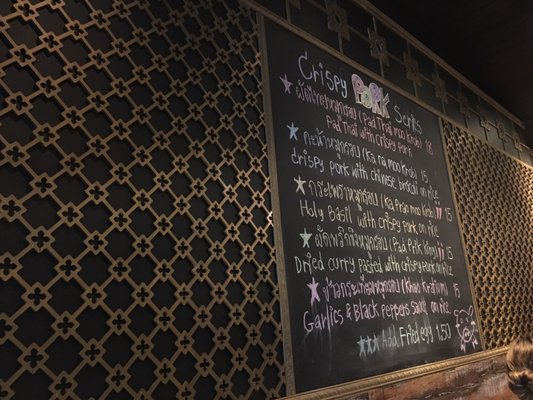 Crispy PORK Series
ผัดไทยหมูกรอบ (Pad Thai moo Krob) 18
Pad Thai with crispy Pork
คะน้าหมูกรอบ (Ka na moo Krob) 15
crispy pork with chinese brocoli on rice
กระเพราหมูกรอบ (Ka Prao moo Krob) 15
Holy Basil with crispy pork on rice
ผัดพริกขิงหมูกรอบ (Pad Prik King) 15
Dried curry pasted with crispy pork on rice
ข้าวกระเทียมหมูกรอบ (Khao Kratium) 15
Garlics & Black Peppers Sauce on rice
Add Fried egg 1.50